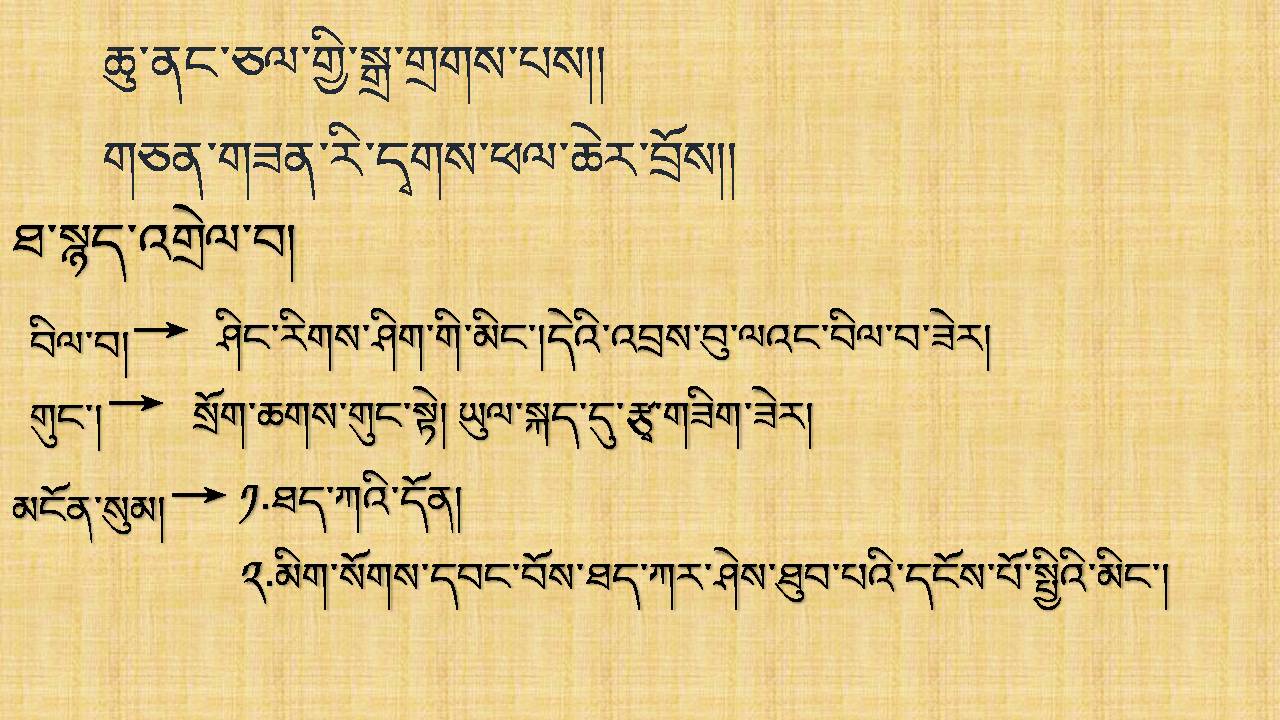 ཆུ་ནང་ཅལ་གྱི་སྒྲ་གྲགས་པས།།
གཅན་གཟན་རི་དྭགས་ཕལ་ཆེར་བྲོས།།
ཐ་སྙད་འགྲེལ་བ།
བིལ་བ།→ ཤིང་རིགས་ཤིག་གི་མིང་།དེའི་འབྲས་བུ་ལའང་བིལ་བ་ཟེར།
གུང་།→ སྲོག་ཆགས་གུང་སྟེ། ཡུལ་སྐད་དུ་རྩྭ་གཟིག་ཟེར།
མངོན་སུམ།→ ༡.ཐད་ཀའི་དོན།
༢.མིག་སོགས་དབང་བོས་ཐད་ཀར་ཤེས་ཐུབ་པའི་དངོས་པོ་སྤྱིའི་མིང་།